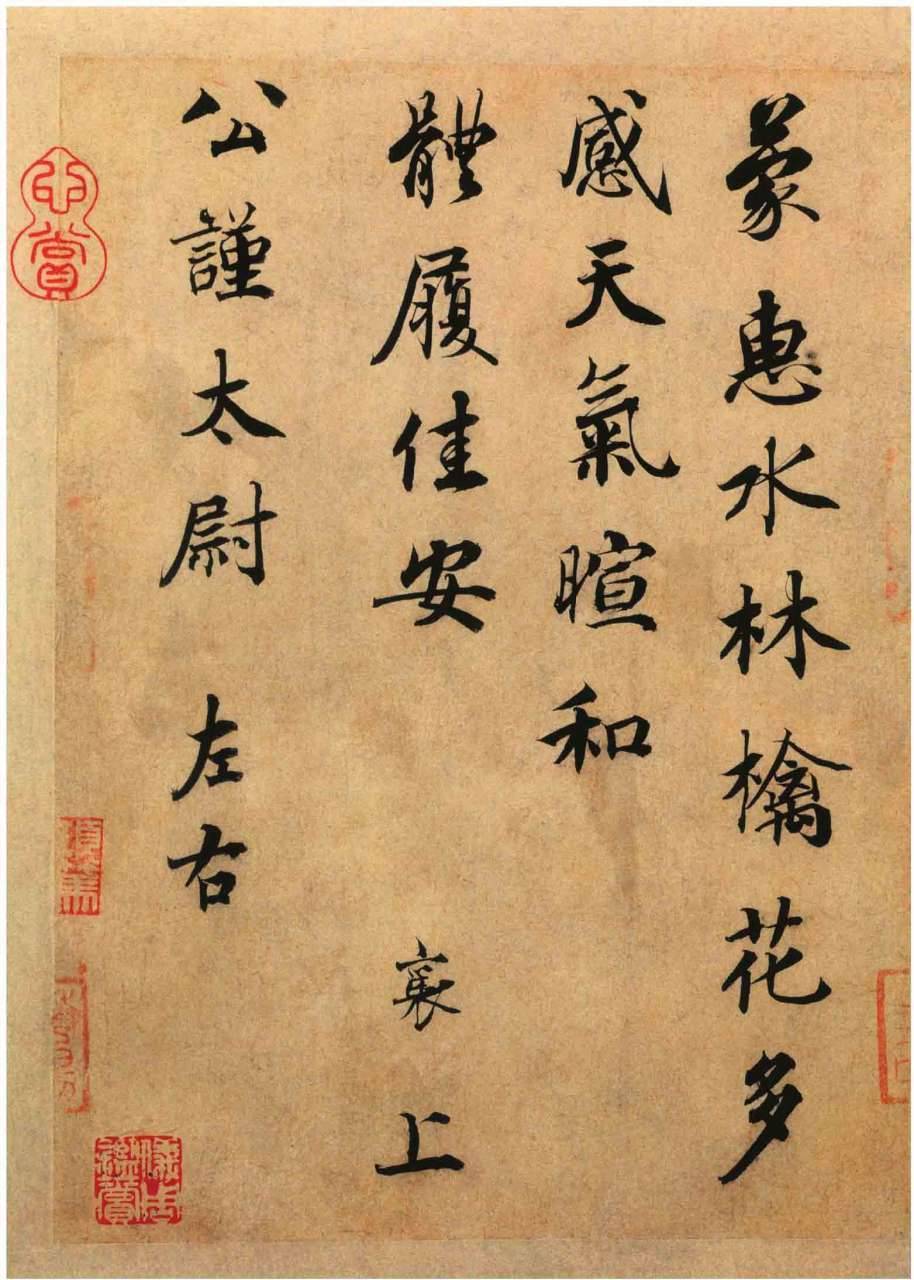 蒙惠水林檎花多
感天氣暄和
體履佳安襄上
公謹太尉左右